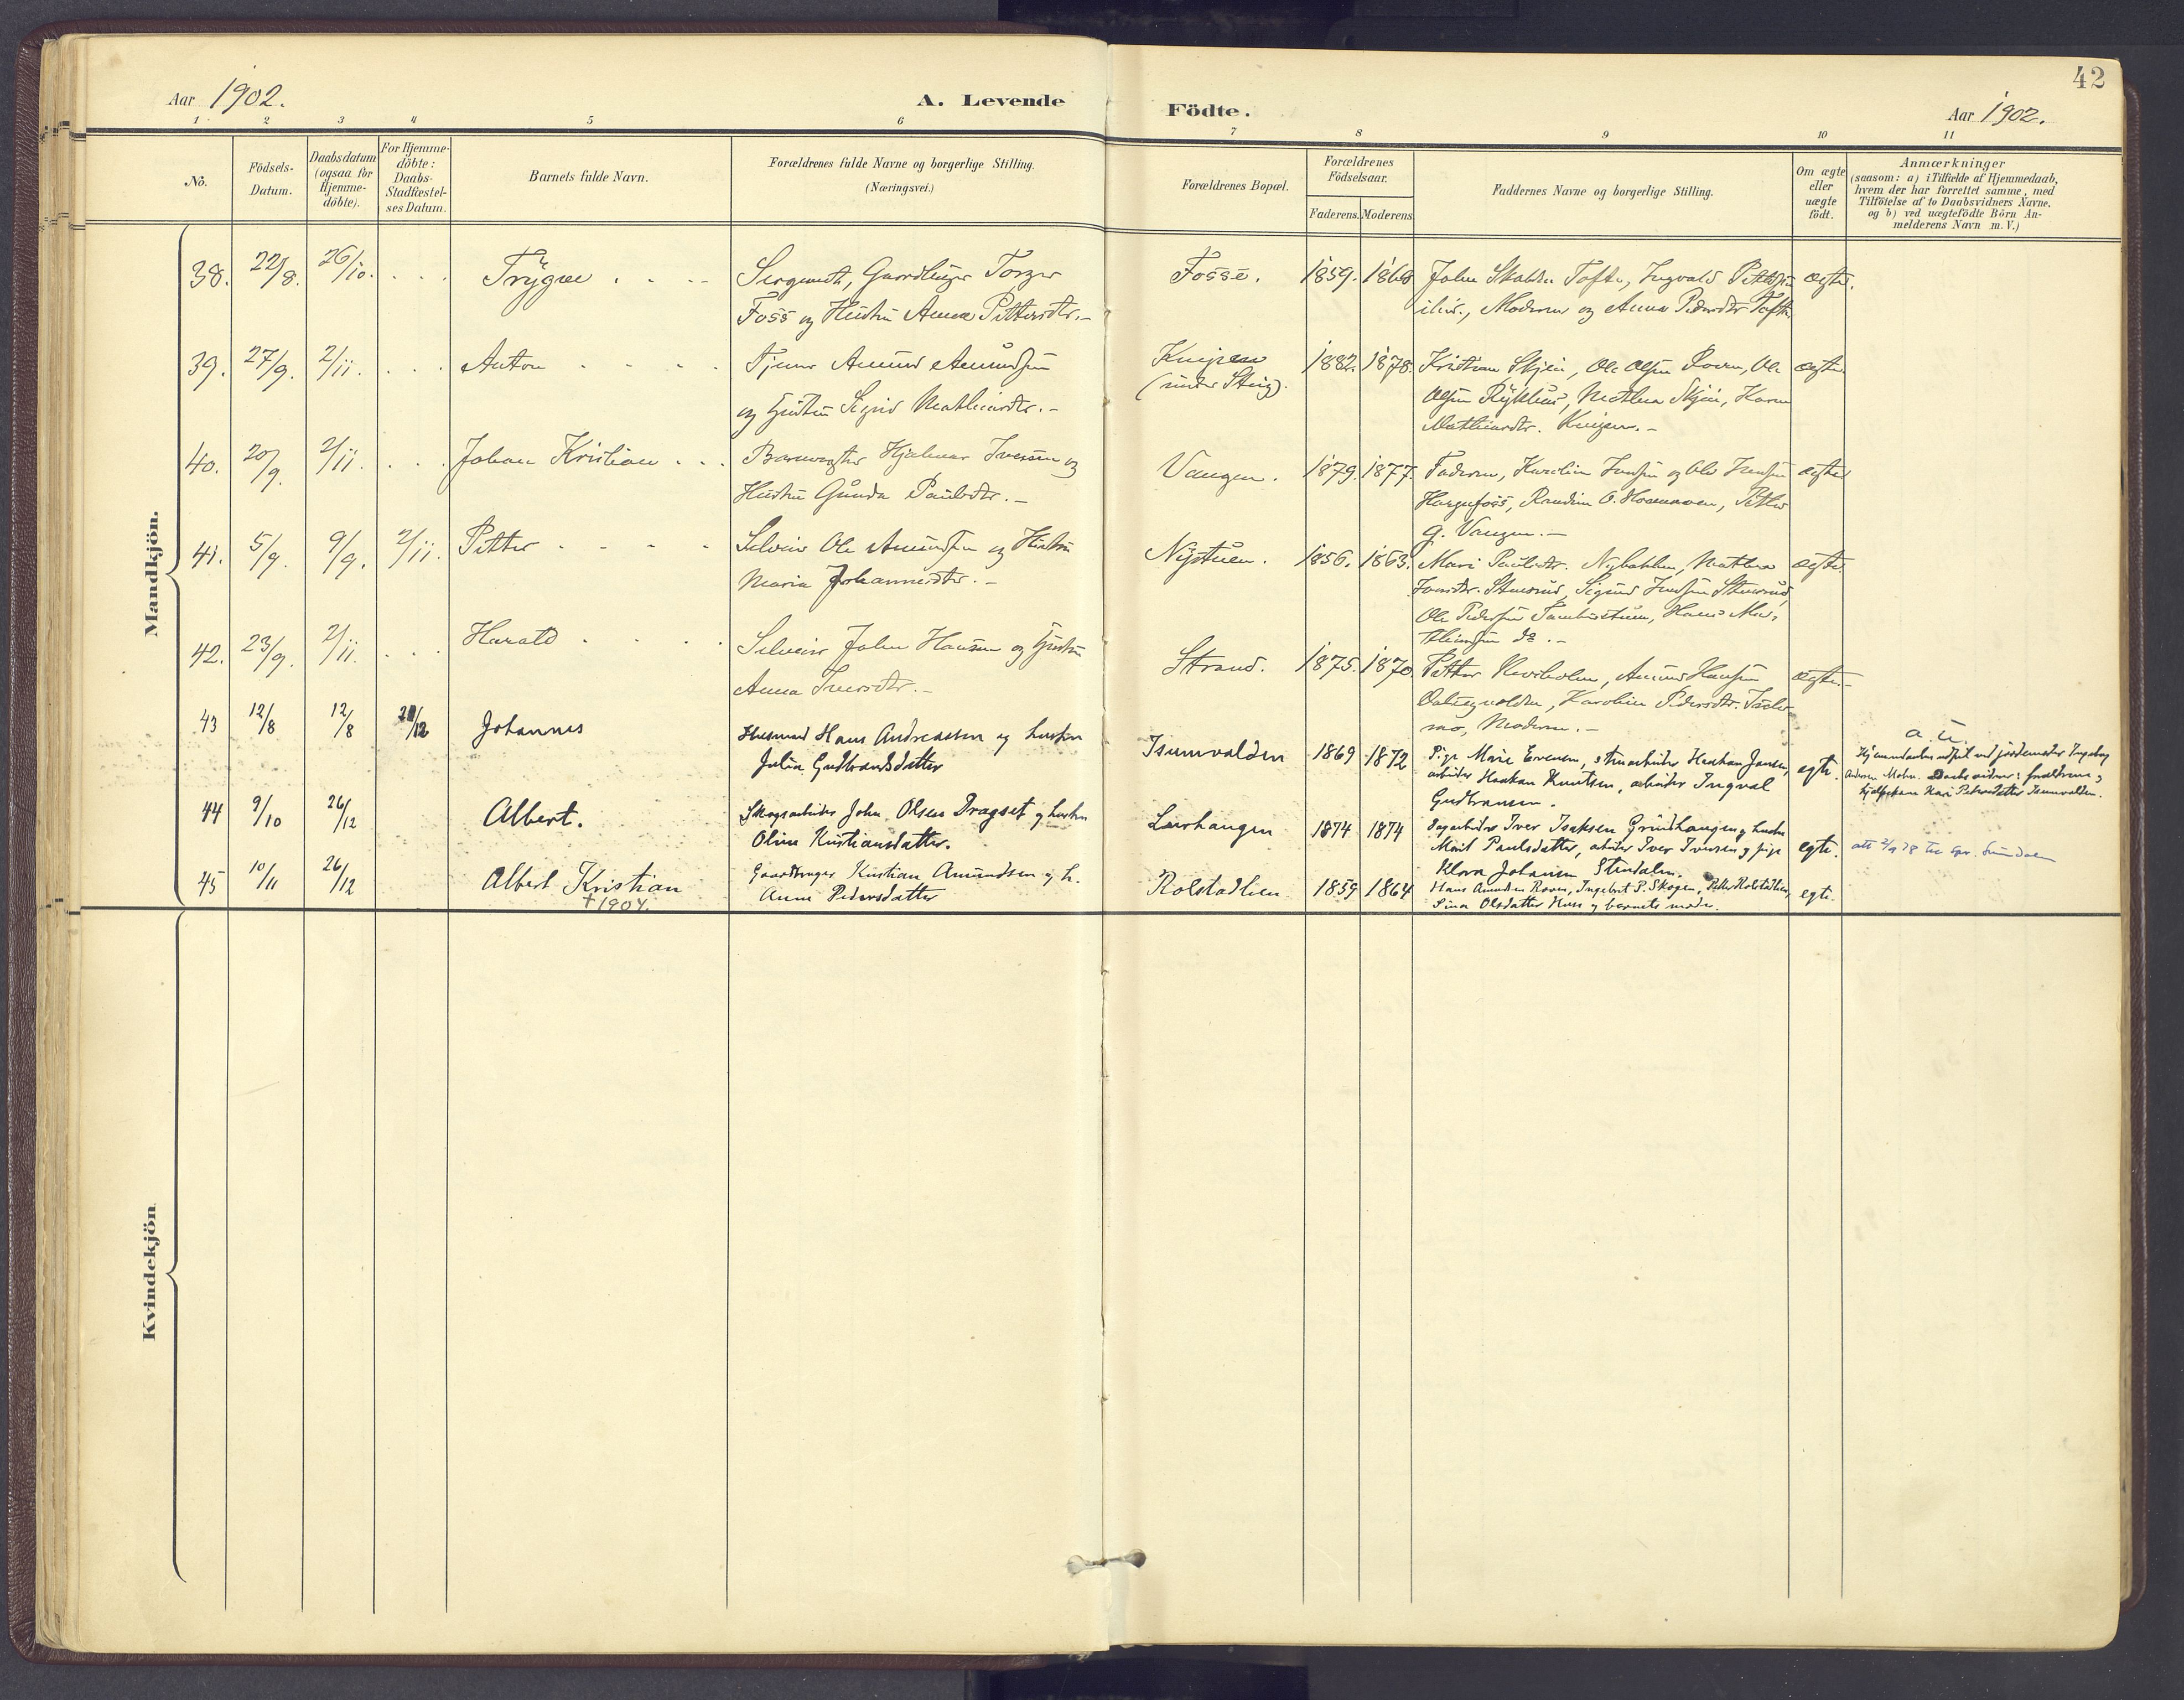 42
Aar 1902. A. Levende Födte. Aar 1902.
1 2 3 4 5 6 7 8 9 10 11
No.
Födsels-
Datum.
Daabsdatum
(ogsaa for
Hjemme-
döbte).
For Hjemme-
döbte:
Daabs-
Stadfæstel-
ses Datum.
Barnets fulde Navn.
Forældrenes fulde Navne og borgerlige Stilling.
(Næringsvei.)
Forældrenes Bopæl.
Forældrenes
Födselsaar.
Faderens. Moderens.
Faddernes Navne og borgerlige Stilling.
Om ægte
eller
uægte
födt.
Anmærkninger
(saasom: a) i Tilfælde af Hjemmedaab,
hvem der har forrettet samme, med
Tilföielse af to Daabsvidners Navne,
og b) ved uægtefödte Börn An-
melderens Navn m.V.)
Mandkjön.
38. 22/8. 26/10. . . . Trygve . . . .
Sergeant, Gaardbruger Torger
Foss og Hustru Anna Pettersdtr. -
Fosse. 1859. 1868
John Tofte, Ingvald
Moderen og Anna Pedersdtr Tofte
ægte.
39. 27/9. 2/11. . . . Anton . . . .
Tjener Amund Amundsen
og Hustru Sigrid Mathiasdtr. -
Knipen
(under Steig).
1882. 1878.
Kristian Skjei, Ole Olsen Roven, Ole
Olsen Mathea Skjei, Karen
Mathiasdtr. Knipen. -
ægte.
40. 20/9. 2/11. . . . Johan Kristian . . .
Hjalmar Iversen og
Hustru Gunda Paulsdtr. -
Vangen. 1879. 1877.
Faderen, Karoline og Ole
Harpefoss, Petter
G. Vangen. -
ægte
41. 5/9. 9/9. 2/11. Petter . . . .
Selveier Ole Amundsen og Hustru
Maria Johannesdtr. -
Nystuen. 1856. 1863.
Mari Paulsdtr. Mathea
Stensrud, Sigurd Stensrud,
Ole Pedersen Hans Ma-
thiasen do. -
ægte.
42. 23/9. 2/11. . . . Harald . . . .
Selveier John Hansen og Hustru
Anna Iversdtr. -
Strand. 1875. 1870.
Petter Amund Hansen
Karoline Pedersdtr.
Moderen. -
ægte. -
43 12/8 12/8 /12 Johannes
Husmand Hans Andreassen og hustru
Julia Gudbrandsdatter
Isumvalden 1869 1872
Pige Marie Evensen, Haakan Jansen,
arbeider Haakan Knutsen, arbeider Ingval
Gudbransen.
egte.
a. u.
Hjemmedaaben udført ved jordemoder Ingeborg
Andersen Mohn. Daabsvidner: forældrene og
Kari Pedersdatter Isumvalden.
44 9/10 26/12 Albert.
Skogsarbeider John Olsen Dragset og hustru
Oline Kristiansdatter.
Laurhaugen 1874 1874
Iver Isaksen Grindhaugen og hustru
Marit Paulsdatter, arbeider Iver Iversen og pige
Klara Johansen Stendalen.
egte.
att 2/9 38
45 10/11 26/12 Albert Kristian
† 1904.
Gaardbruger Kristian Amundsen og h.
Anne Pedersdatter
Rolstadlien 1859 1864
Hans Amundsen Roven, Ingebret P. Skogen, Rolstadlien,
Olsdatter og barnets moder.
egte.
Kvindekjön